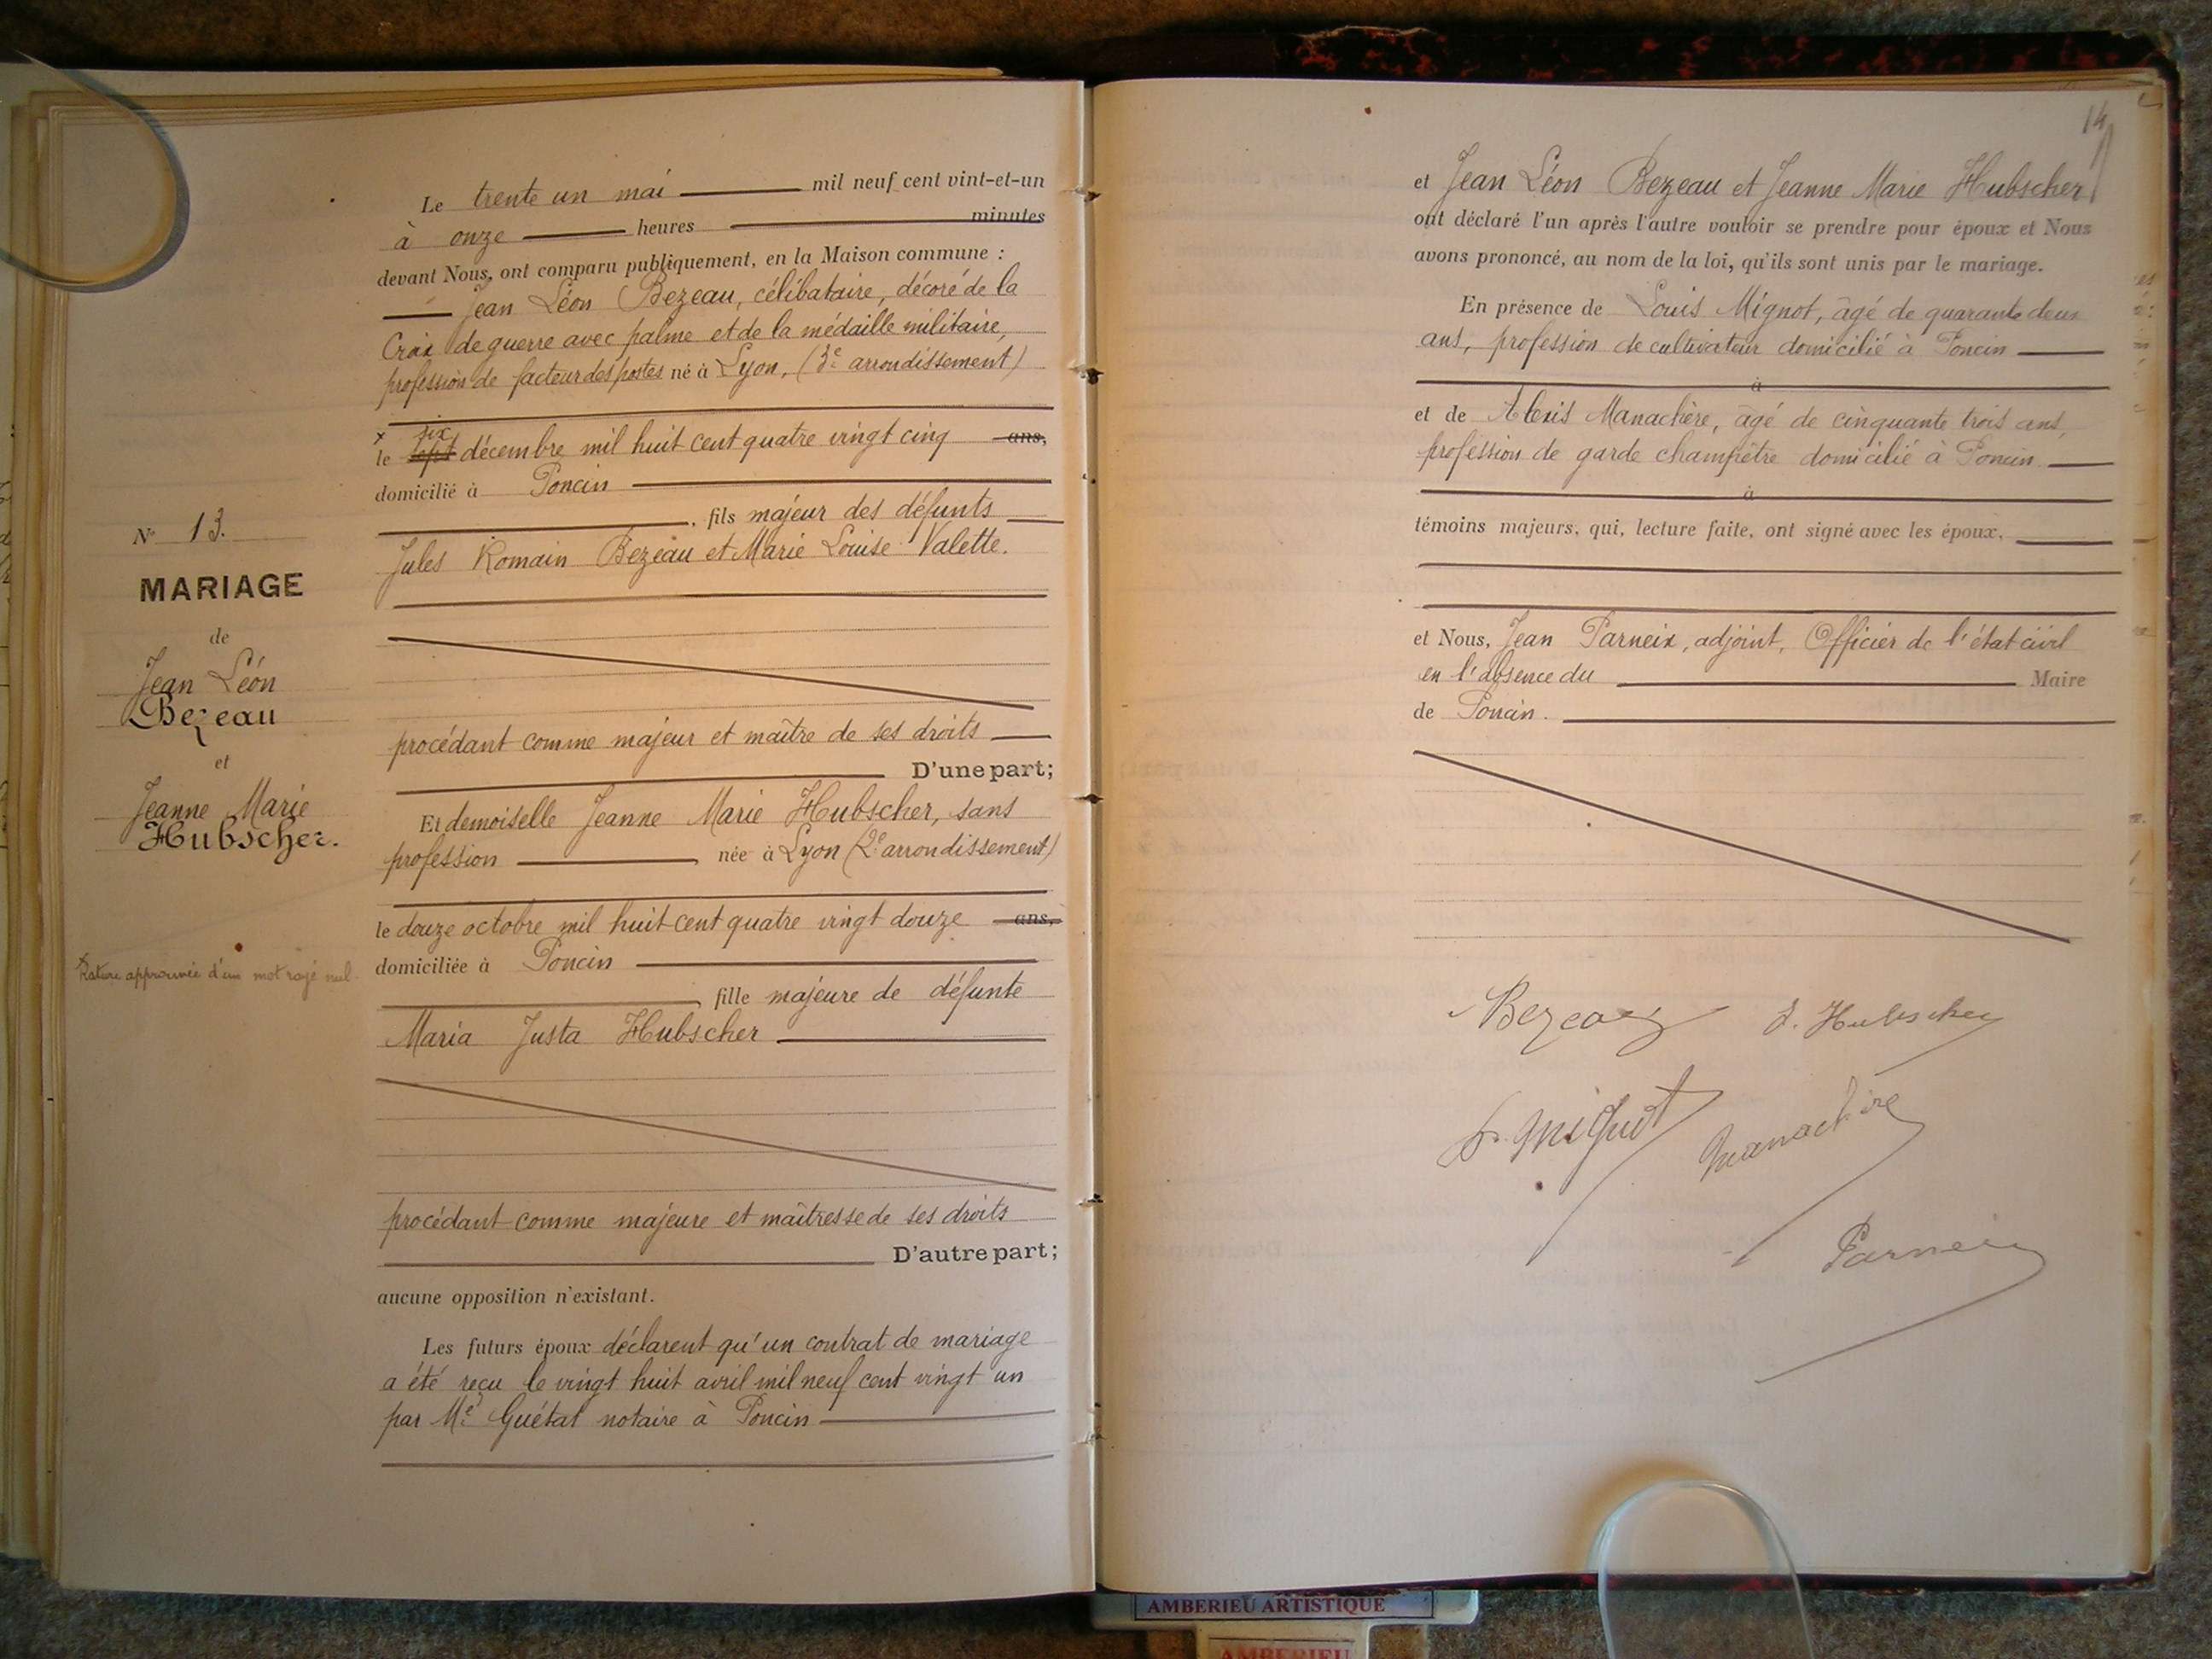 N° 13.
MARIAGE
de
Jean Léon
Bezeau
et
Jeanne Marie
Hubscher.
Rature approuvée d'un mot rayé nul
Le trente un mai mil neuf cent vint-et-un
à onze heures minutes
devant Nous, ont comparu publiquement, en la Maison commune :
Jean Léon Bezeau, célibataire, décoré de la
Croix de guerre avec palme et de la médaille militaire,
profession de facteur des postes né à Lyon, (3e arrondissement)
x six
le sept décembre mil huit cent quatre vingt cinq ans,
domicilié à Poncin
, fils majeur des défunts
Jules Romain Bezeau et Marie Louise Valette.
procédant comme majeur et maître de ses droits
D'une part;
Et demoiselle Jeanne Marie Hubscher, sans
profession , née à Lyon (2e arrondissement)
le douze octobre mil huit cent quatre vingt douze ans,
domiciliée à Poncin
, fille majeure de défunte
Maria Justa Hubscher
procédant comme majeure et maîtresse de ses droits
D'autre part;
aucune opposition n'existant.
Les futurs époux déclarent qu'un contrat de mariage
a été reçu le vingt huit avril mil neuf cent vingt un
par Me Guétat notaire à Poncin
14
et Jean Léon Bezeau et Jeanne Marie Hubscher
ont déclaré l'un après l'autre vouloir se prendre pour époux et Nous
avons prononcé, au nom de la loi, qu'ils sont unis par le mariage.
En présence de Louis Mignot, âgé de quarante deux
ans, profession de cultivateur domicilié à Poncin
à
et de Alexis Manachère, âgé de cinquante trois ans,
profession de garde champêtre domicilié à Poncin
à
témoins majeurs, qui, lecture faite, ont signé avec les époux,
et Nous, Jean Parneix, adjoint, Officier de l'état civil
en l'absence du Maire
de Poncin.
Bezeau J. Hubscher
L. Mignot Manachère
Parneix
AMBERIEU ARTISTIQUE
AMBERIEU